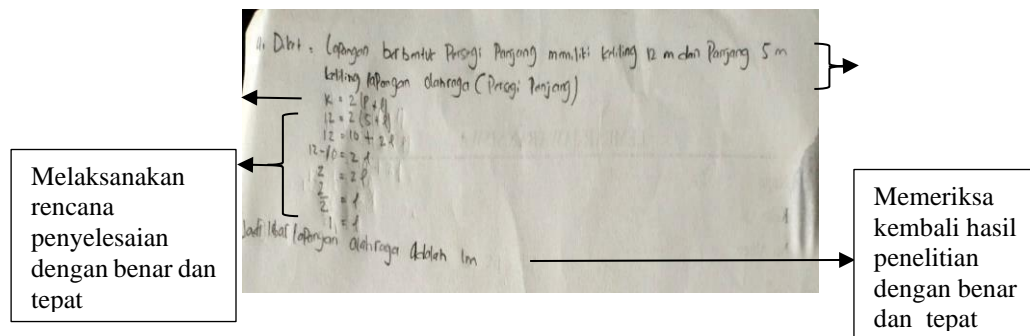 Dikt : Lapangan berbentuk Persegi Panjang memiliki keliling 12 m dan Panjang 5 m
keliling lapangan olahraga (Persegi Panjang)
K = 2 (P + l)
12 = 2 (5 + l)
12 = 10 + 2 l
12 - 10 = 2 l
2 = 2 l
2/2 = l
1 = l
Jadi lebar lapangan olahraga Adalah 1m
Melaksanakan
rencana
penyelesaian
dengan benar dan
tepat
Memeriksa
kembali hasil
penelitian
dengan benar
dan tepat